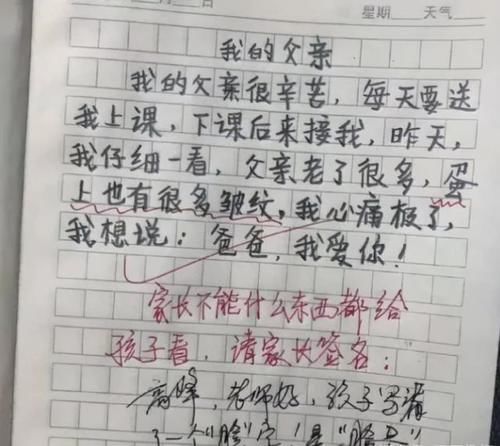 星期 天气
我的父亲
我的父亲很辛苦，每天要送
我上课，下课后来接我，昨天，
我仔细一看，父亲老了很多，蛋
上也有很多皱纹，我心痛极了，
我想说：爸爸，我爱你！
家长不能什么东西都给
孩子看，请家长签名：
高峰，老师好，孩子写错
了一个"脸"字！是"脸上"